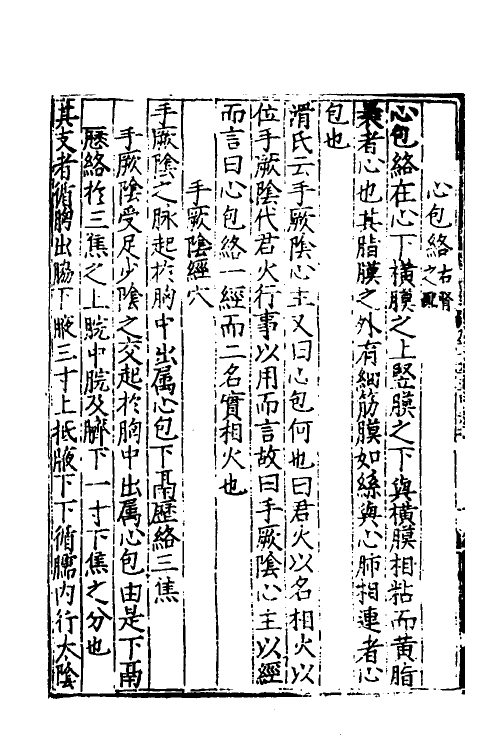 心包絡右腎之配
心包絡在心下橫膜之上竪膜之下與橫膜相粘而黄脂
裹者心也其脂膜之外有細筋膜如絲與心肺相連者心
包也
滑氏云手厥陰心主又曰心包何也曰君火以名相火以
位手厥陰代君火行事以用而言故曰手厥陰心主以經
而言曰心包絡一經而二名實相火也
手厥陰經穴
手厥陰之脉起於胸中出属心包下鬲歷絡三焦
手厥陰受足少陰之交起於胸中出属心包由是下鬲
歷絡於三焦之上脘中脘及臍下一寸下焦之分也
其支者循胸出脇下腋三寸上抵腋下下循臑內行太陰